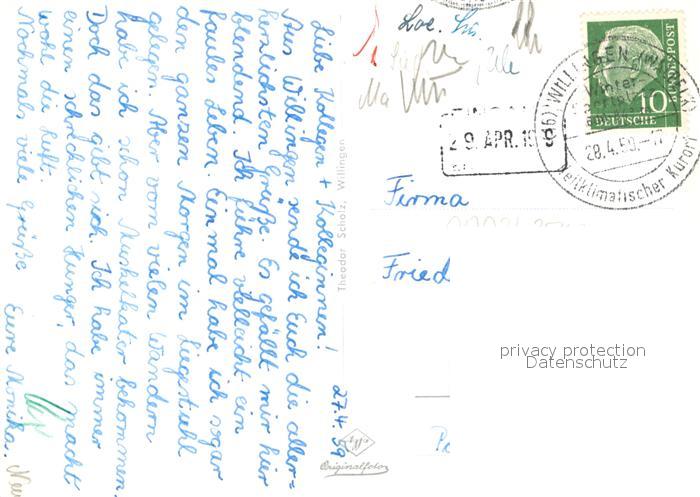 27.4.59
Liebe Kollegen + Kolleginnen!
Aus Willingen sende ich Euch die aller-
herzlichsten Grüße. Es gefällt mir hier
blendend. Ich führe vielleicht ein
faules Leben. Einmal habe ich sogar
den ganzen Morgen im Liegestuhl
gelegen. Aber vom vielen Wandern
habe ich schon Muskelkater bekommen.
Doch das gibt sich. Ich habe immer
einen schrecklichen Hunger, das macht
wohl die Luft.
Nochmals viele Grüße
Eure Monika.
Theodor Scholz, Willingen
Agfa
Originalfoto
29. APR. 19
(16) WILLINGEN
28.4.59.-17
Heilklimatischer Kurort
DEUTSCHE
BUNDESPOST
10
Firma
Fried
privacy protection
Datenschutz